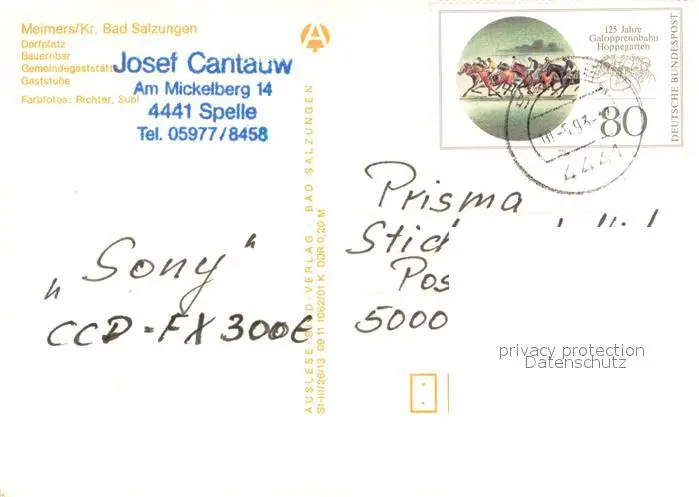 Meimers/Kr. Bad Salzungen
Dorfplatz
Bauernbar
Gemeindegaststätte
Gaststube
Farbfotos: Richter, Suhl
Josef Cantauw
Am Mickelberg 14
4441 Spelle
Tel. 05977/8458
125 Jahre
Galopprennbahn
Hoppegarten
DEUTSCHE BUNDESPOST
80
4441
Prisma
Stich
Pos
5000
„Sony“
CCD-FX300E
AUSLESE-BILD-VERLAG · BAD SALZUNGEN
St-III/26/13 09 11 1062/01 K DDR 0,20 M
privacy protection
Datenschutz